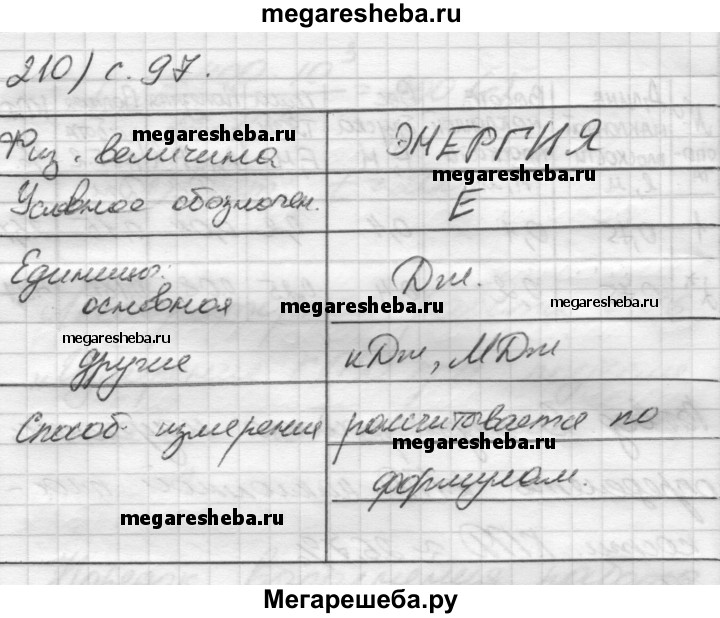 megaresheba.ru
210) с. 97.
Физ. величина ЭНЕРГИЯ
megaresheba.ru
megaresheba.ru
Условное обозначен. E
Единицы:
основная Дж.
megaresheba.ru
megaresheba.ru
megaresheba.ru
другие кДж, МДж
Способ измерения рассчитывается по
megaresheba.ru
формулам.
megaresheba.ru
Мегарешеба.ру